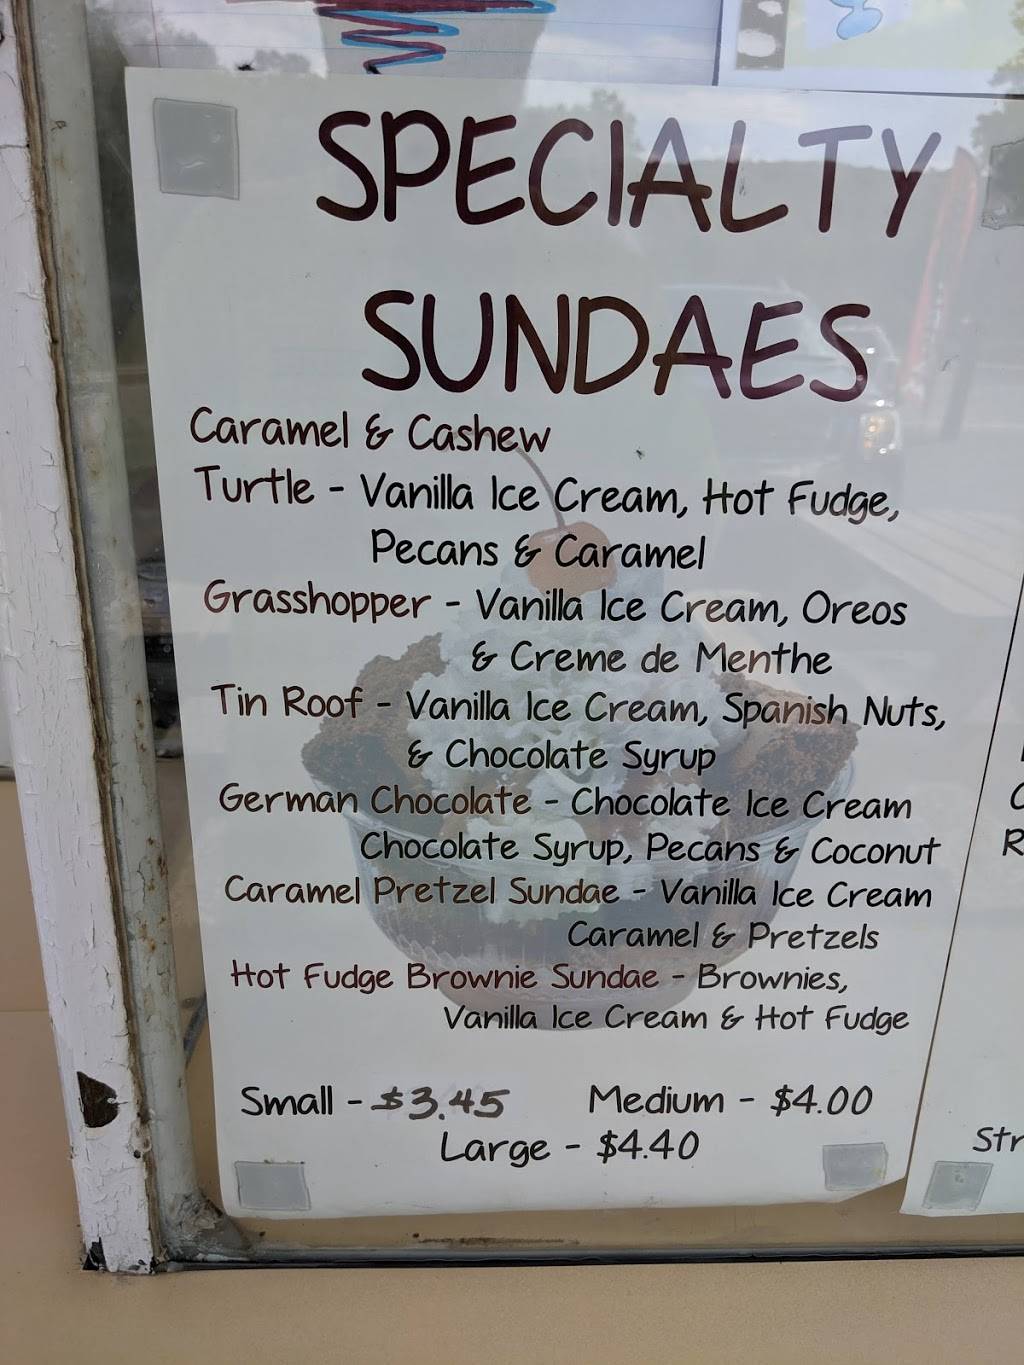 SPECIALTY
SUNDAES
Caramel & Cashew
Turtle - Vanilla Ice Cream, Hot Fudge,
Pecans & Caramel
Grasshopper - Vanilla Ice Cream, Oreos
& Creme de Menthe
Tin Roof - Vanilla Ice Cream, Spanish Nuts,
& Chocolate Syrup
German Chocolate - Chocolate Ice Cream
Chocolate Syrup, Pecans & Coconut
Caramel Pretzel Sundae - Vanilla Ice Cream
Caramel & Pretzels
Hot Fudge Brownie Sundae - Brownies,
Vanilla Ice Cream & Hot Fudge
Small - $3.45 Medium - $4.00
Large - $4.40
Str